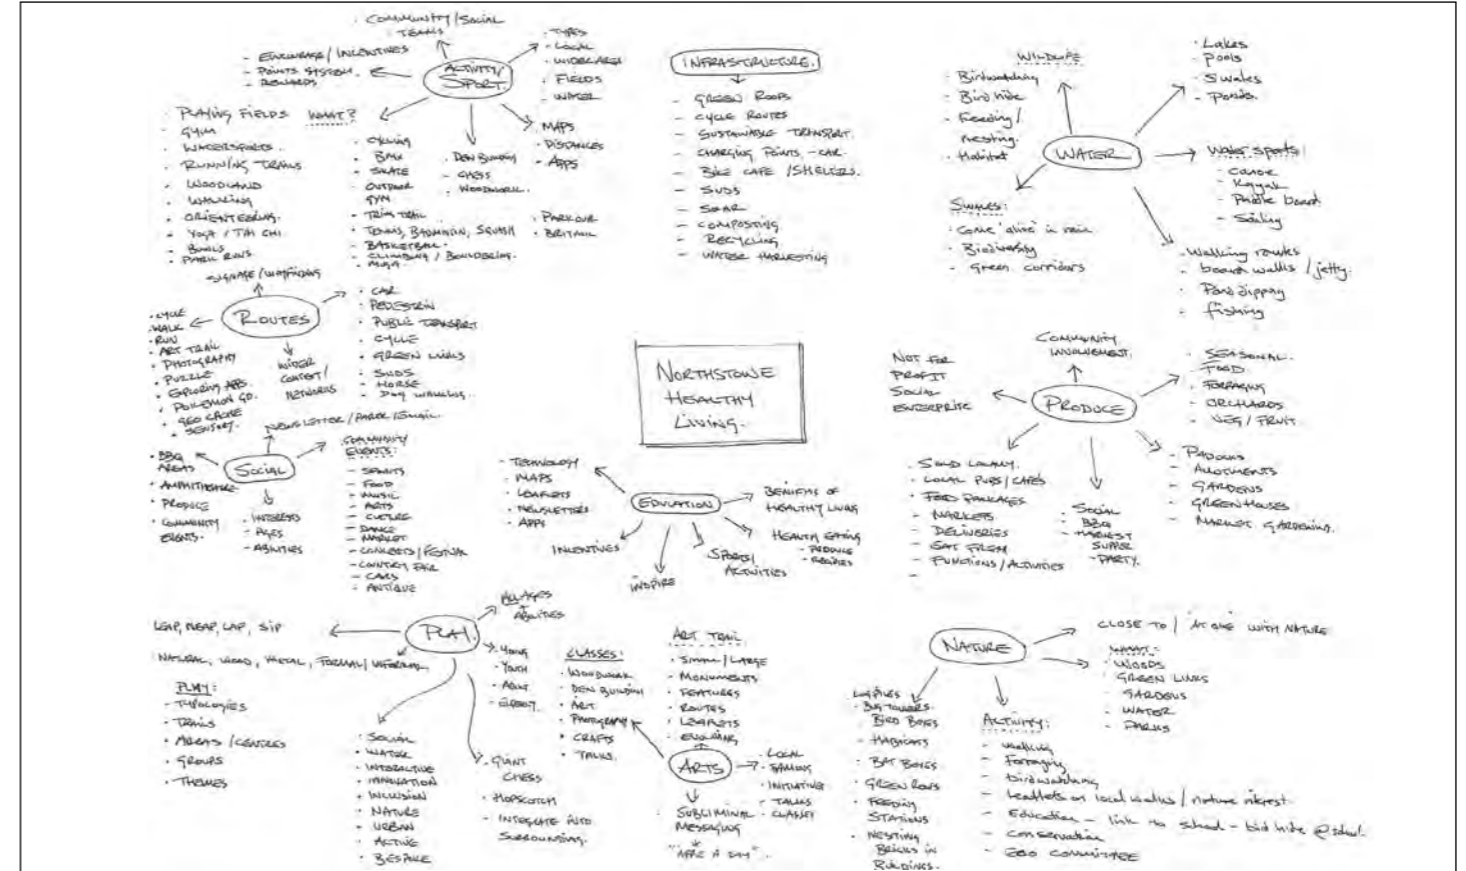 NORTHSTOWE
HEALTHY
LIVING.
ACTIVITY/
SPORT.
· COMMUNITY/SOCIAL
TEAMS
- ENCOURAGE/INCENTIVES
- POINTS SYSTEM.
- REWARDS
· TYPES
· LOCAL
· WIDER AREA
· FIELDS
- WATER
· MAPS
· DISTANCES
· APPS
WHAT?
· PLAYING FIELDS
· GYM
· WATERSPORTS.
· RUNNING TRAILS
· WOODLAND
· WALKING
· ORIENTEERING.
· YOGA / TAI CHI
· BOWLS
· PARK RUNS
· CYCLING
· BMX
· SKATE
· OUTDOOR
GYM
· TRIM TRAIL
· TENNIS, BADMINTON, SQUASH
- BASKETBALL.
- CLIMBING / BOULDERING.
- MUGA
· DEN BUILDING
- CHESS
· WOODWORK.
· PARKOUR
INFRASTRUCTURE.
- GREEN ROOFS
- CYCLE ROUTES
- SUSTAINABLE TRANSPORT.
- CHARGING POINTS - CAR
- BIKE CAFE / SHELTERS.
- SUDS
- SOLAR
- COMPOSTING
- RECYCLING
- WATER HARVESTING
WATER
WILDLIFE
· Birdwatching
· Bird hide
· Feeding /
nesting.
· Habitat
· Lakes
· Pools
· Swales
· Ponds.
Water sports:
- Canoe
· Kayak
· Paddle board
- Sailing
SWALES:
· Come 'alive' in rain.
· Biodiversity
- Green corridors
· Walking routes
· board walks / jetty.
· Pond dipping
· fishing
ROUTES
SIGNAGE / WAYFINDING
· CYCLE
· WALK
· RUN
· ART TRAIL
· PHOTOGRAPHY
· PUZZLE
· EXPLORING APPS.
· POKEMON GO.
· GEO CACHE
· SENSORY.
WIDER
CONTEXT/
NETWORKS
· CAR
· PEDESTRIAN
· PUBLIC TRANSPORT
· CYCLE
· GREEN LINKS
· SUDS
- HORSE
- DOG WALKING
SOCIAL
NEWSLETTER/PAPER/EMAIL.
· BBQ
AREAS
· AMPHITHEATRE
· PRODUCE
· COMMUNITY
EVENTS.
· INTERESTS
- AGES
- ABILITIES
COMMUNITY
EVENTS:
- SPORTS
- FOOD
- MUSIC
- ARTS
- CULTURE
- DANCE
- MARKET
- CONCERTS / FESTIVAL
- COUNTRY FAIR
- CARS
- ANTIQUE
EDUCATION
· TECHNOLOGY
· MAPS
· LEAFLETS
· NEWSLETTERS
· APPS
INCENTIVES
INSPIRE
SPORTS/
ACTIVITIES
BENEFITS OF
HEALTHY LIVING
HEALTHY EATING
- PRODUCE
- RECIPES
PRODUCE
COMMUNITY
INVOLVEMENT.
NOT FOR
PROFIT
SOCIAL
ENTERPRISE
· SEASONAL.
- FOOD
· FORRAGING
· ORCHARDS
· VEG / FRUIT.
· SOLD LOCALLY.
· LOCAL PUBS / CAFES
· FOOD PACKAGES
- MARKETS
- DELIVERIES
- EAT FRESH
- FUNCTIONS / ACTIVITIES
-
· SOCIAL
- BBQ
- HARVEST
SUPPER
- PARTY.
· PADDOCKS
- ALLOTMENTS
- GARDENS
- GREENHOUSES
- MARKET GARDENING.
PLAY.
ALL AGES
+
ABILITIES
LEAP, NEAP, LAP, SIP
NATURAL, WOOD, METAL, FORMAL/INFORMAL
PLAY:
- TYPOLOGIES
- TRAILS
· AREAS / CENTRES
· GROUPS
· THEMES
· SOCIAL
· WATER
· INTERACTIVE
· IMAGINATION
· INCLUSION
· NATURE
· URBAN
· ACTIVE
· BESPOKE
· YOUNG
· YOUTH
· ADULT
- ELDERLY
· GIANT
CHESS
· HOPSCOTCH
- INTEGRATE INTO
SURROUNDING.
CLASSES:
· WOODWORK
· DEN BUILDING
· ART
· PHOTOGRAPHY
· CRAFTS
· TALKS.
ARTS
ART TRAIL
· SMALL / LARGE
- MONUMENTS
· FEATURES
· ROUTES
· LEAFLETS
- EVOLVING
· LOCAL
· FAMOUS
· INITIATING
- TALKS
· CLASSES
· SUBLIMINAL
MESSAGING
"APPLE A DAY".
NATURE
CLOSE TO / AT ONE WITH NATURE
WHAT:
· WOODS
· GREEN LINKS
· GARDENS
· WATER
· PARKS
LOG PILES
· BUG TOWERS
BIRD BOXES
· HABITATS
· BAT BOXES
· GREEN ROOFS
· FEEDING
STATIONS
· NESTING
BRICKS IN
BUILDINGS.
ACTIVITY:
- Walking
- Forraging
- birdwatching
- Leaflets on local walks / nature interest
- Education - link to school - bird hide @ school.
- Conservation
- ECO COMMITTEE